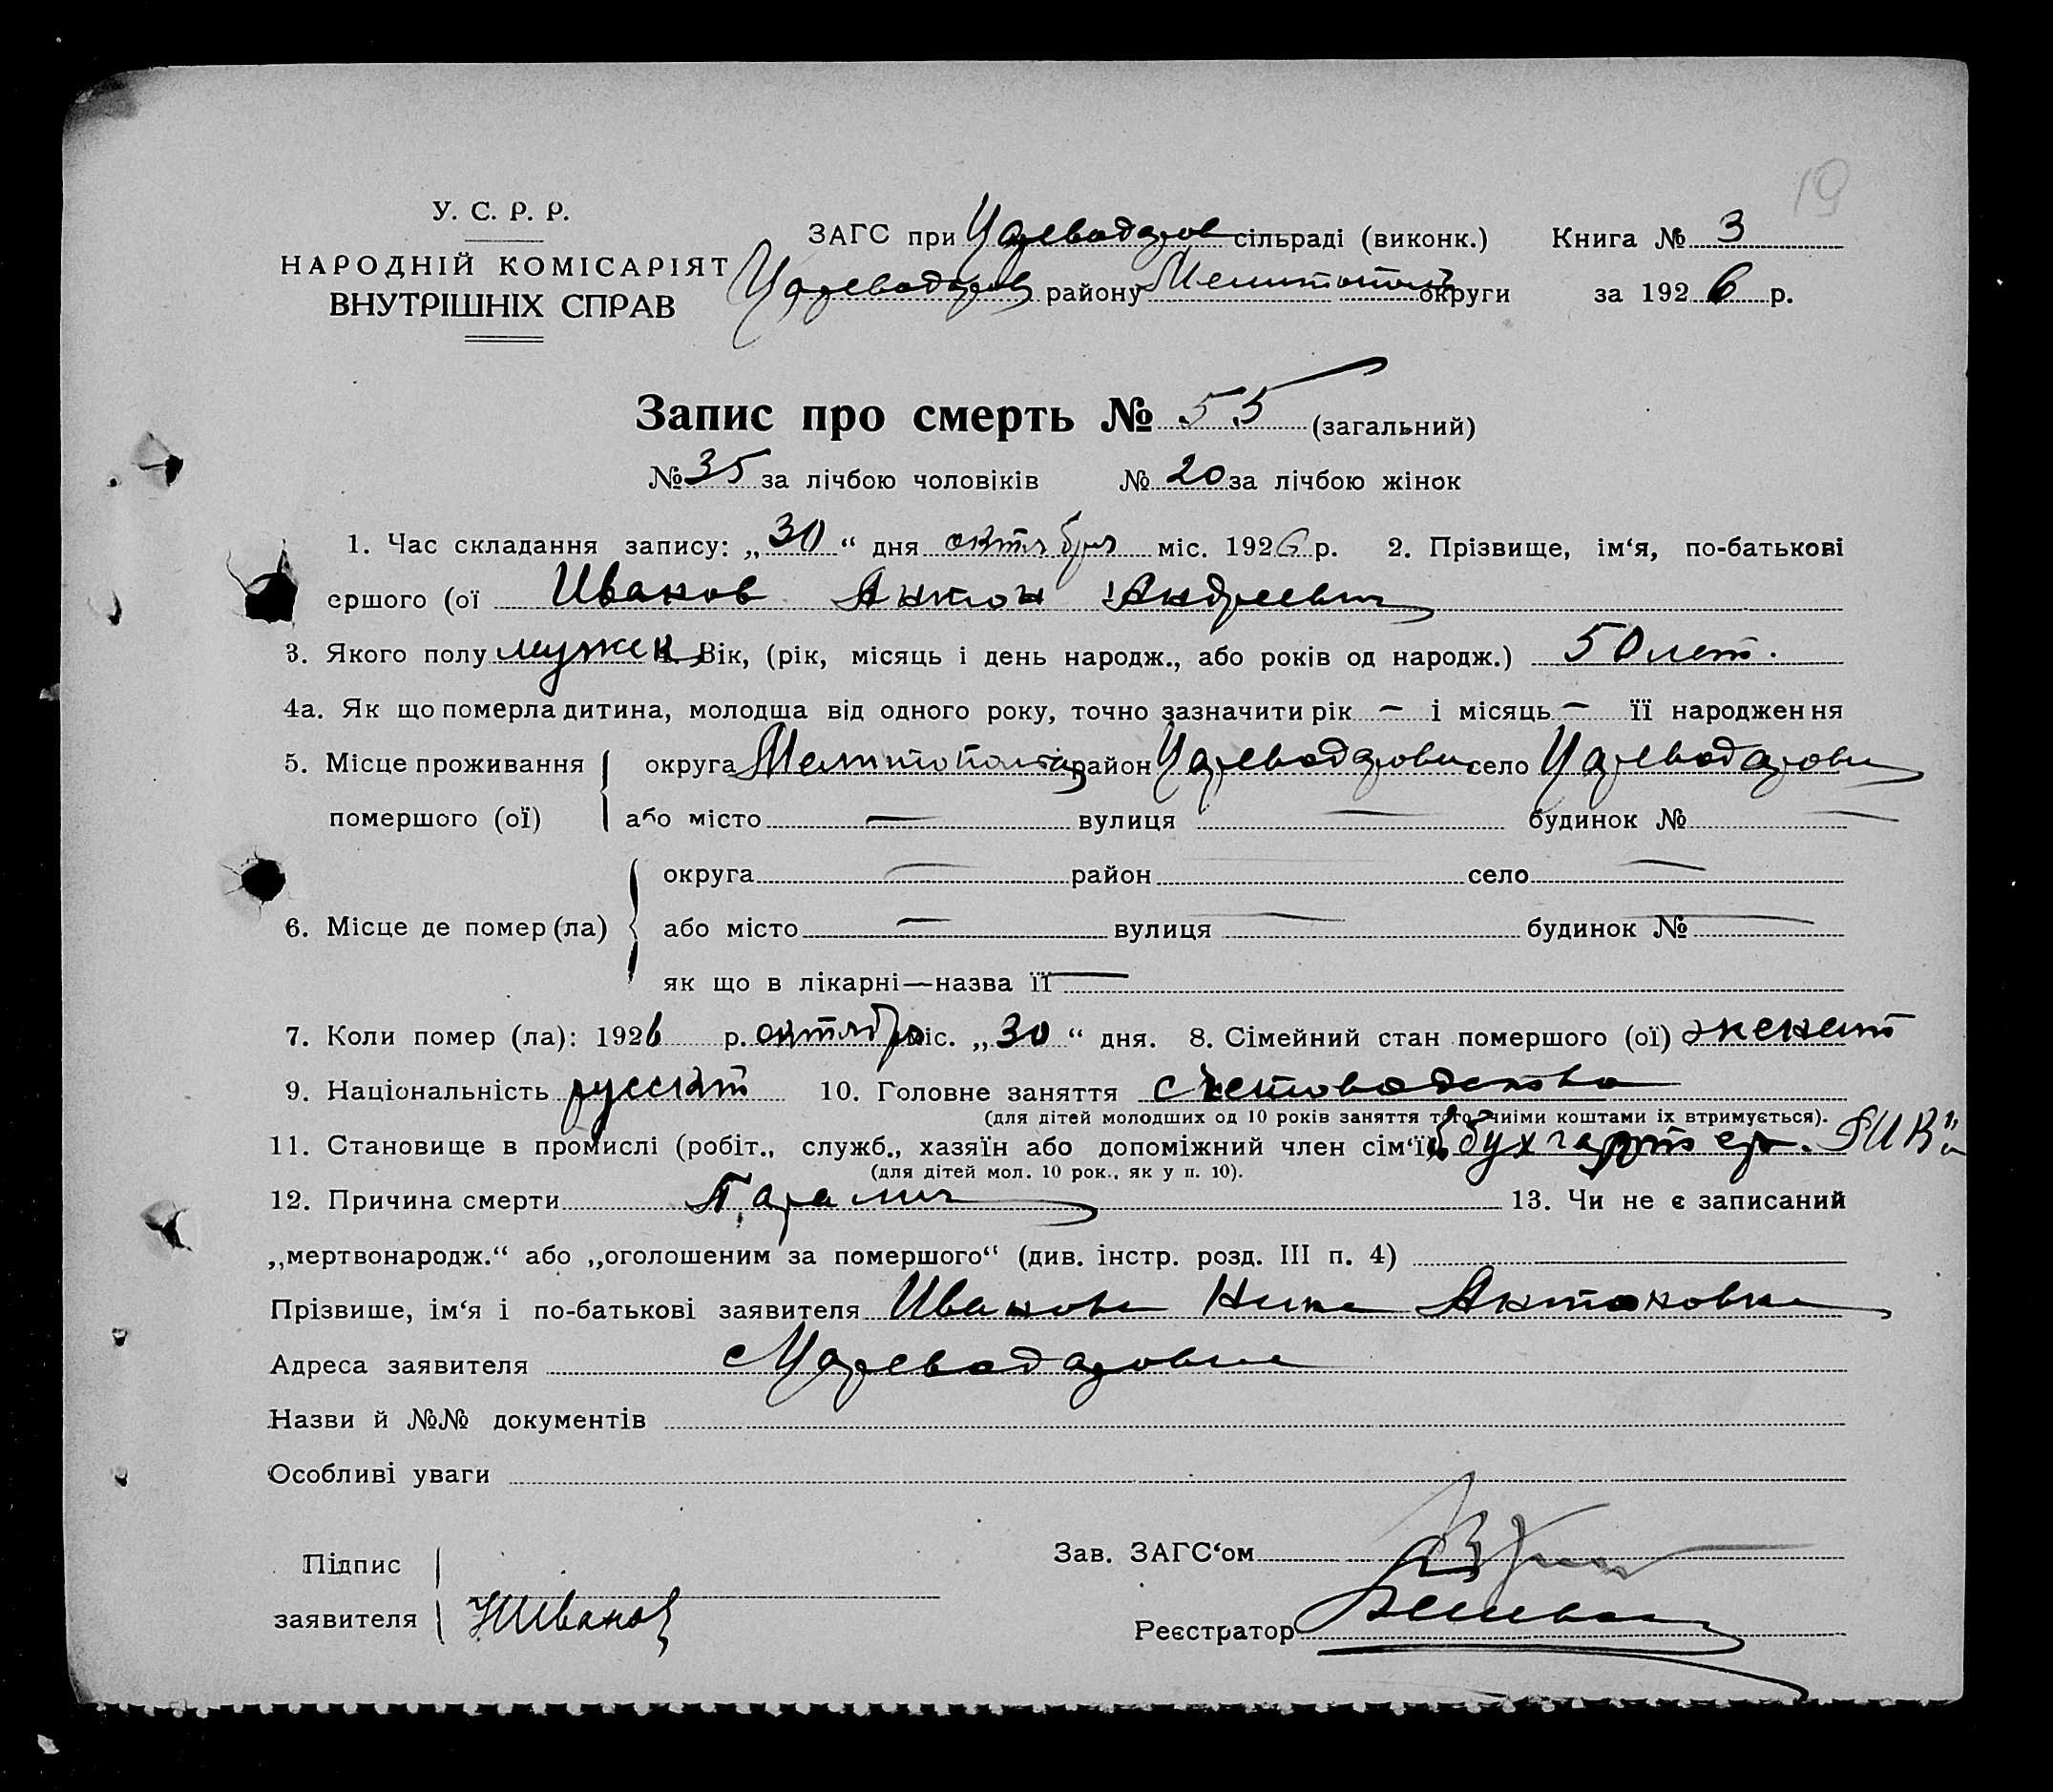 19
У. С. Р. Р.
НАРОДНІЙ КОМІСАРІЯТ
ВНУТРІШНІХ СПРАВ
ЗАГС при Цареводаров сільраді (виконк.) Книга № 3
Цареводаров району Мелитопол округи за 1926 р.
Запис про смерть № 55 (загальний)
№ 35 за лічбою чоловіків № 20 за лічбою жінок
1. Час складання запису: „30“ дня октября міс. 1926 р. 2. Прізвище, ім‘я, по-батькові
ершого (ої Иванов Антон Андреевич
3. Якого полу мужск 4. Вік, (рік, місяць і день народж., або років од народж.) 50 лет.
4а. Як що померла дитина, молодша від одного року, точно зазначити рік — і місяць — її народження
5. Місце проживання округа Мелитопольск район Цареводаровк село Цареводаровка
помершого (ої) або місто — вулиця — будинок № —
округа — район село —
6. Місце де помер (ла) або місто — вулиця — будинок № —
як що в лікарні—назва її —
7. Коли помер (ла): 1926 р. октября міс. „30“ дня. 8. Сімейний стан помершого (ої) женат
9. Національність 10. Головне заняття счетоводство
(для дітей молодших од 10 років заняття того чиїми коштами їх втримується).
11. Становище в промислі (робіт., служб., хазяїн або допоміжний член сім‘ї) бухгалтер. РИК
(для дітей мол. 10 рок., як у п. 10).
12. Причина смерти Паралич 13. Чи не є записаний
„мертвонародж.“ або „оголошеним за помершого“ (див. інстр. розд. III п. 4)
Прізвише, ім‘я і по-батькові заявителя Иванова Нина Антоновна
Адреса заявителя с Цареводаровка
Назви й №№ документів
Особливі уваги
Зав. ЗАГС‘ом
Підпис
заявителя НИванов
Реєстратор